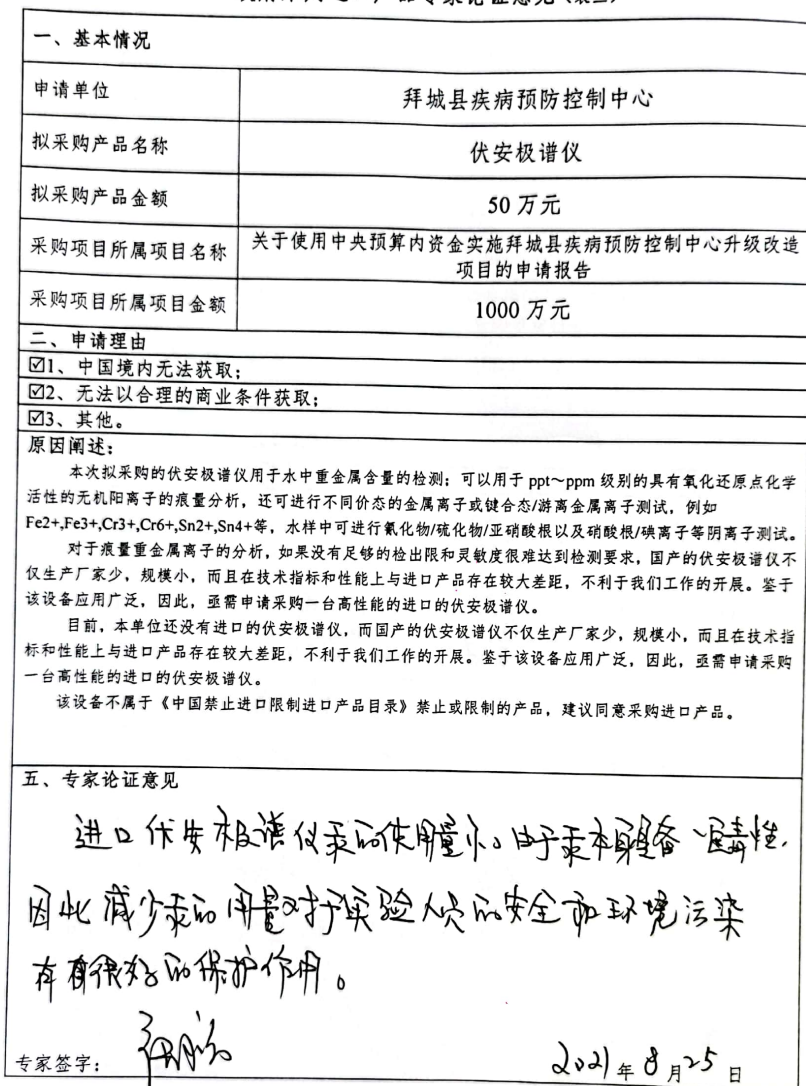 产品专家论证意见
一、基本情况
申请单位 拜城县疾病预防控制中心
拟采购产品名称 伏安极谱仪
拟采购产品金额 50万元
采购项目所属项目名称 关于使用中央预算内资金实施拜城县疾病预防控制中心升级改造
项目的申请报告
采购项目所属项目金额 1000万元
二、申请理由
☑1、中国境内无法获取；
☑2、无法以合理的商业条件获取；
☑3、其他。
原因阐述：
本次拟采购的伏安极谱仪用于水中重金属含量的检测；可以用于 ppt～ppm 级别的具有氧化还原点化学
活性的无机阳离子的痕量分析，还可进行不同价态的金属离子或键合态/游离金属离子测试，例如
Fe2+,Fe3+,Cr3+,Cr6+,Sn2+,Sn4+等，水样中可进行氰化物/硫化物/亚硝酸根以及硝酸根/碘离子等阴离子测试。
对于痕量重金属离子的分析，如果没有足够的检出限和灵敏度很难达到检测要求，国产的伏安极谱仪不
仅生产厂家少，规模小，而且在技术指标和性能上与进口产品存在较大差距，不利于我们工作的开展。鉴于
该设备应用广泛，因此，亟需申请采购一台高性能的进口的伏安极谱仪。
目前，本单位还没有进口的伏安极谱仪，而国产的伏安极谱仪不仅生产厂家少，规模小，而且在技术指
标和性能上与进口产品存在较大差距，不利于我们工作的开展。鉴于该设备应用广泛，因此，亟需申请采购
一台高性能的进口的伏安极谱仪。
该设备不属于《中国禁止进口限制进口产品目录》禁止或限制的产品，建议同意采购进口产品。
五、专家论证意见
进口伏安极谱仪汞的使用量小。由于汞本身具备一定毒性，
因此减少汞的用量对于实验人员的安全和环境污染
存有很好的保护作用。
专家签字： 2021年8月25日